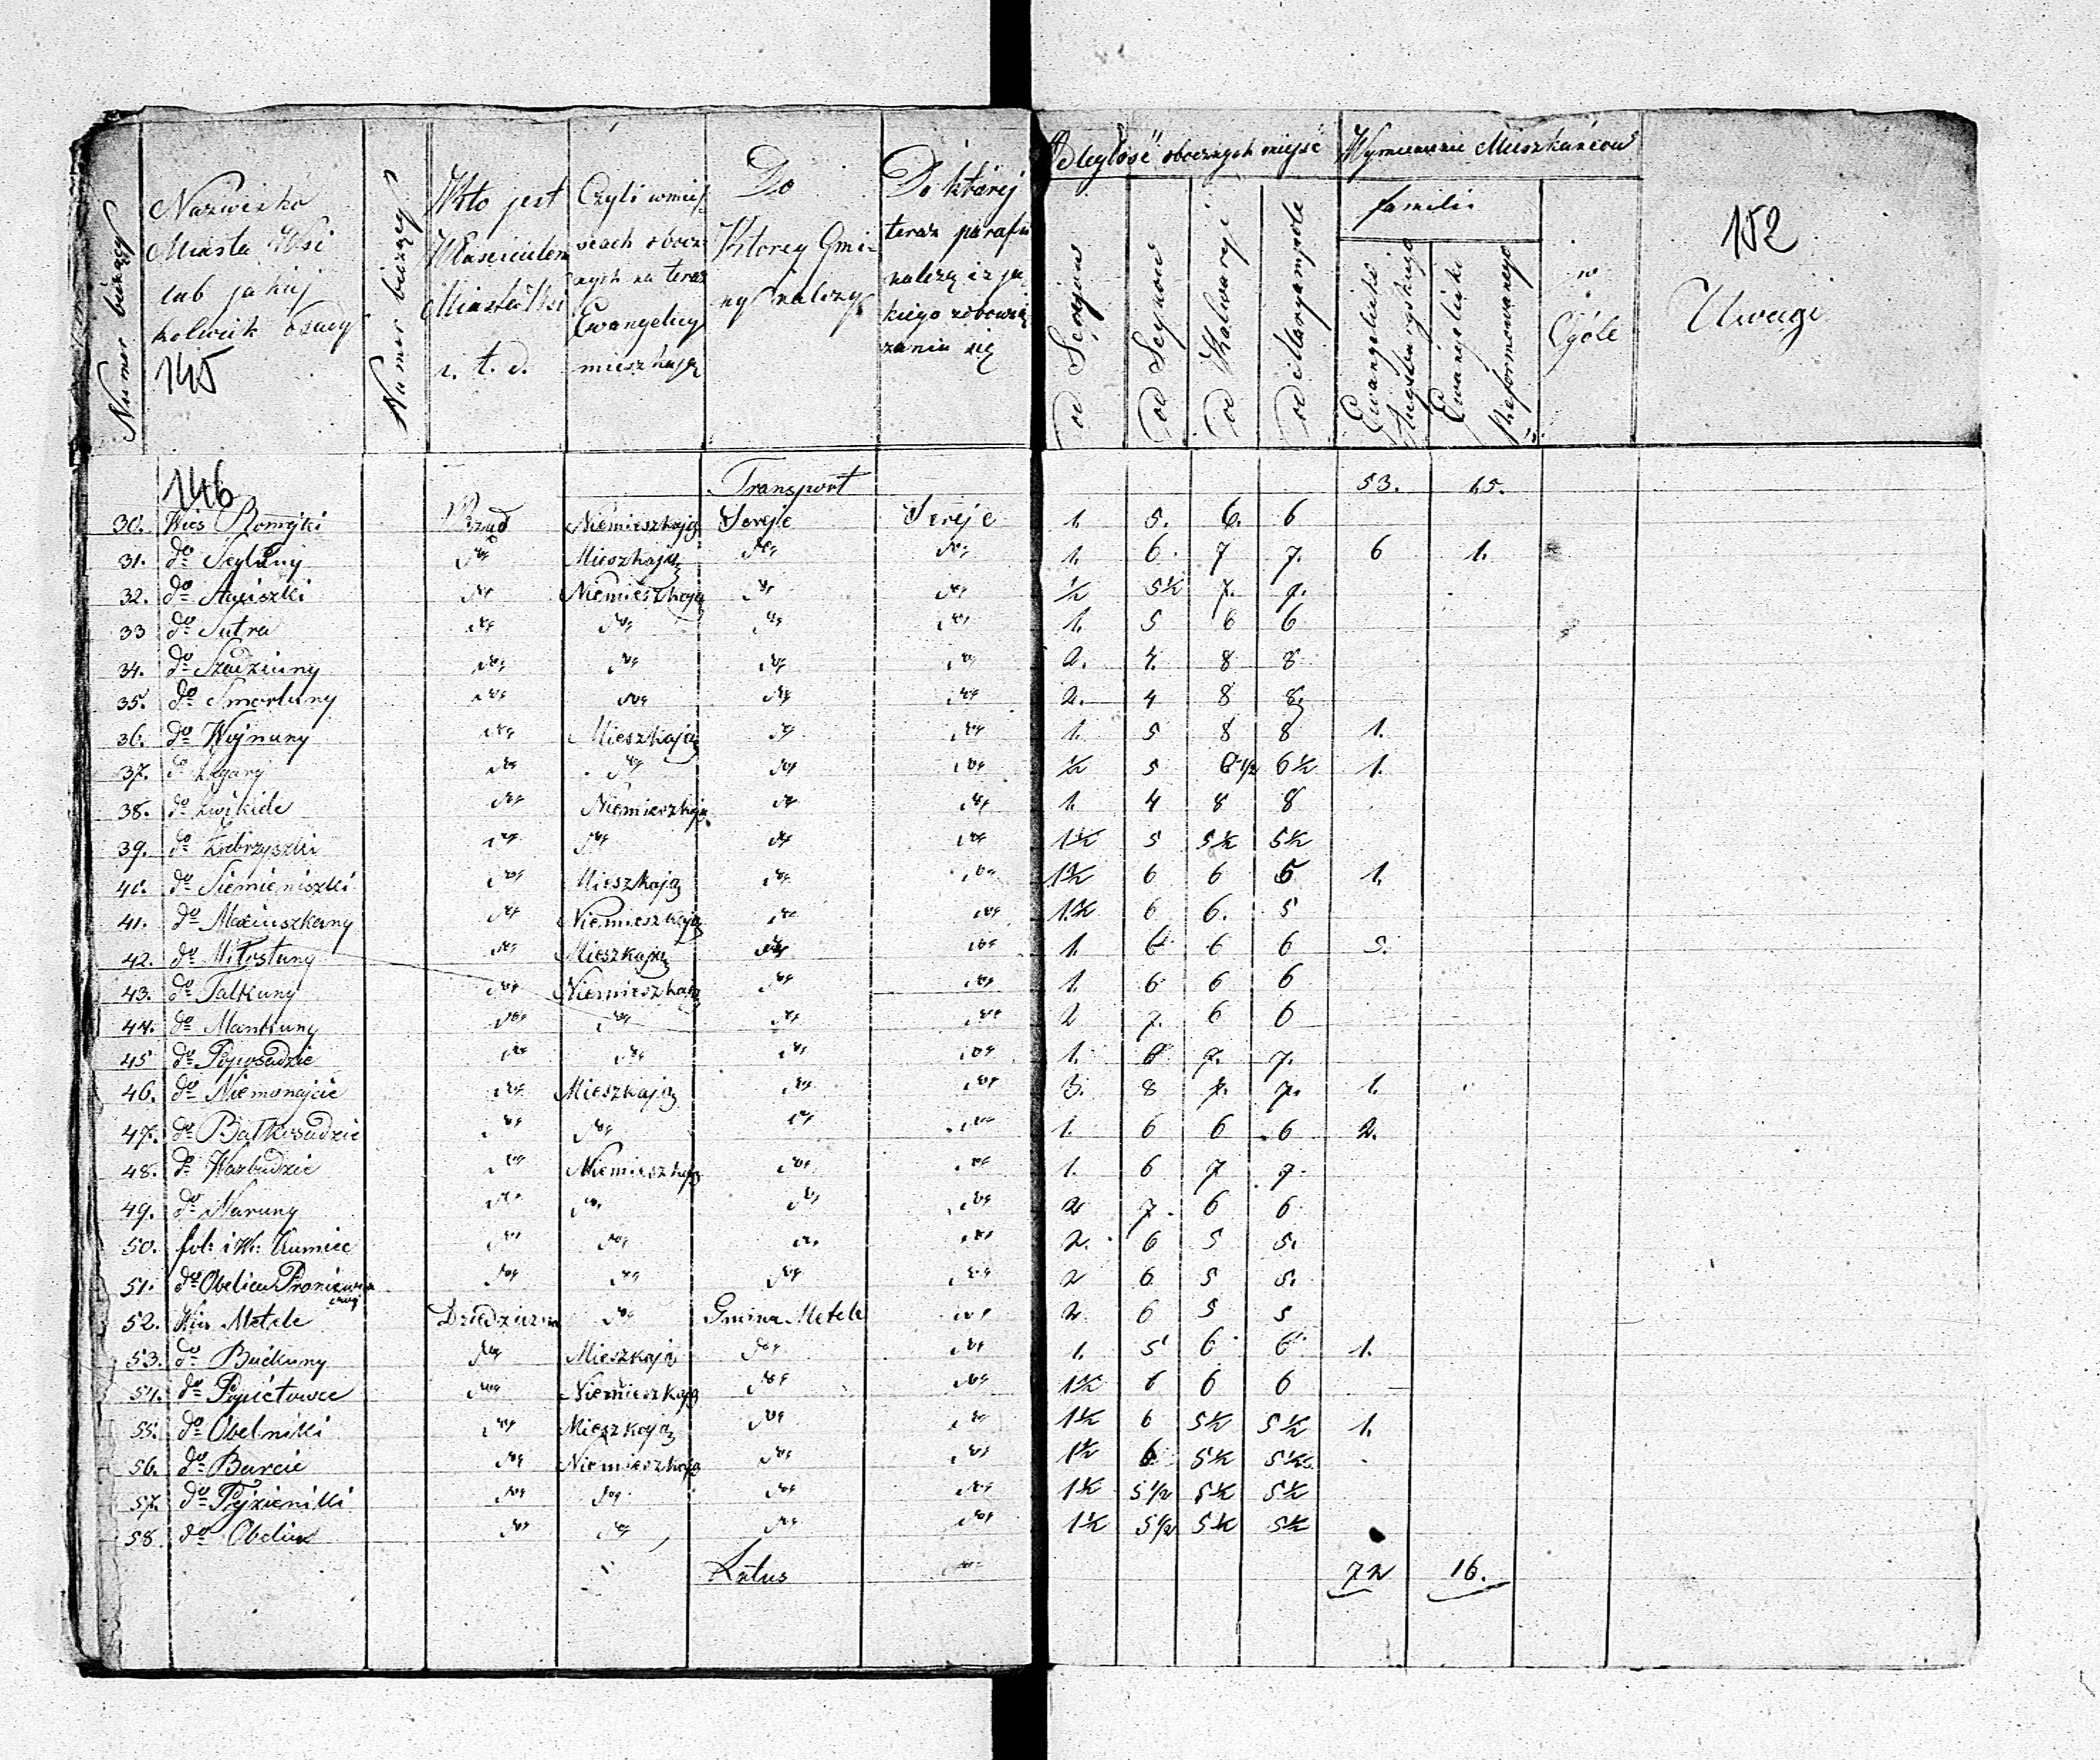 Numer bieżący
Nazwisko
Miasta Wsi
lub jakiej
kolwiek Osady
145
Numer bieżący
Kto jest
Właścicielem
Miasta Wsi
i. t. d.
Czyli wmiej-
scach obocz-
nych na teraz
Ewangelicy
mieszkają
Do
Ktorey Gmi-
ny należy
Do któréj
teraz parafii
należą i z ja-
kiego zobowią-
zania się
Odległość obocznych miejsc
od Serejow
od Seynow
od Kalwaryi
od Maryampola
Wymienienie Mieszkańcow
familii
Ewangelicki Augsburgskiego
Ewangelicki Reformowanego
w
Ogóle
152
Uwagi
146 Transport 53. 15.
30. Wieś Romejki Rząd Niemieszkają Sereje Sereje 1. 5. 6. 6
31. do Seyluny do Mieszkają do do 1. 6. 7 7. 6 1.
32. do do Niemieszkają do do ½ 5½ 7. 7.
33 do Sutra do do do do 1. 5 6 6
34. do Szadziuny do do do do 2. 4. 8 8
35. do Smorluny do do do do 2. 4 8 8.
36. do Wojnuny do Mieszkają do do 1. 5 8 8 1.
37. do Zagary do do do do ½ 5 6½ 6½ 1.
38. do do Niemieszkają do do 1. 4 8 8
39. do do do do do 1½ 5 5½ 5½
40. do Siemieniszki do Mieszkają do do 1½ 6 6 5 1.
41. do Maciuszkany do Niemieszkają do do 1½ 6 6. 5
42. do Miłostuny do Mieszkają do do 1. 6 6 6 5.
43. do Talkuny do Niemieszkają do do 1. 6 6 6
44. do Mankuny do do do do 2 7. 6 6
45 do Poposadzie do do do do 1. 6 7. 7.
46. do Niemonajcie do Mieszkają do do 3. 8 7. 7. 1.
47. do Bałkosadzie do do do do 1. 6 6 6 2.
48. do Warbudzie do Niemieszkają do do 1. 6 7 7.
49. do Naruny do do do do 2 7. 6 6
50. fol: i W: Kumiec do do do do 2. 6 5 5.
51. do Obelica do do do do 2 6 5 5.
52. Wieś Metele Dziedziczna do Gmina Metele do 2. 6 5 5
53. do Buckuny do Mieszkają do do 1. 5 6 6 1.
54. do Popiełowce do Niemieszkają do do 1½ 6 6 6
55. do Obelniki do Mieszkają do do 1½ 6 5½ 5½ 1.
56. do Burcie do Niemieszkają do do 1½ 6 5½ 5½
57. do do do do do 1½ 5½ 5½ 5½
58 do Obelica do do do do 1½ 5½ 5½ 5½
Latus do 72 16.